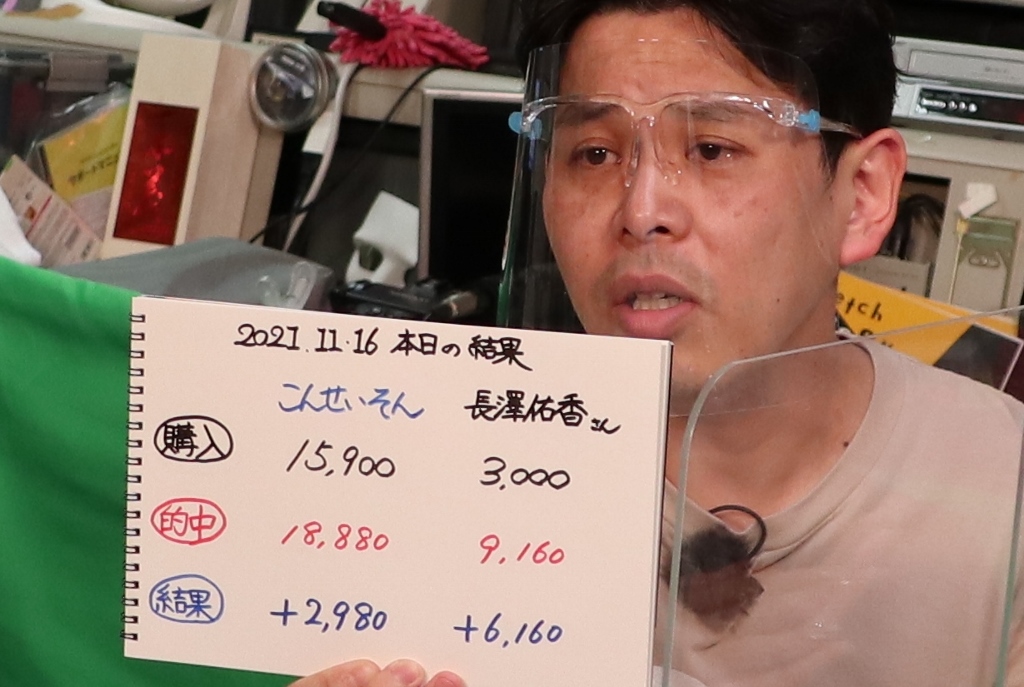 サポートマニュ
etch
2021.11.16 本日の結果
こんせいそん 長澤佑香さん
購入 15,900 3,000
的中 18,880 9,160
結果 +2,980 +6,160